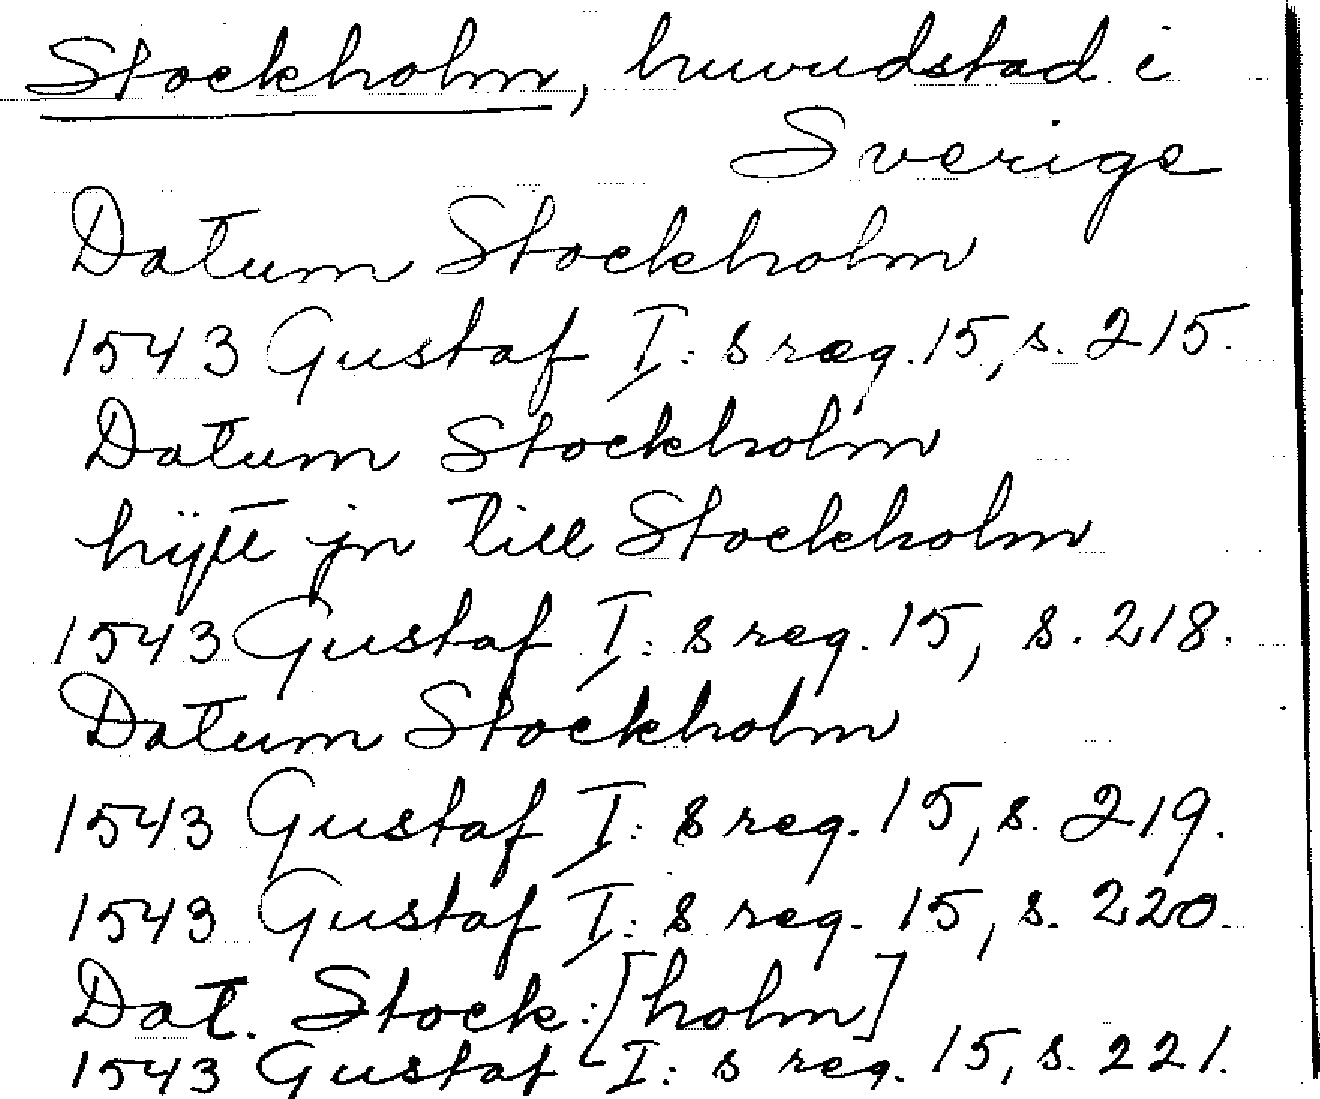 Stockholm, huvudstad i
Sverige
Datum Stockholm
1543 Gustaf I: s reg. 15, s. 215.
Datum Stockholm
hijtt jn till Stockholm
1543 Gustaf I: s reg. 15, s. 218.
Datum Stockholm
1543 Gustaf I: s reg. 15, s. 219.
1543 Gustaf I: s reg. 15, s. 220.
Dat. Stock:[holm]
1543 Gustaf I: s reg. 15, s. 221.